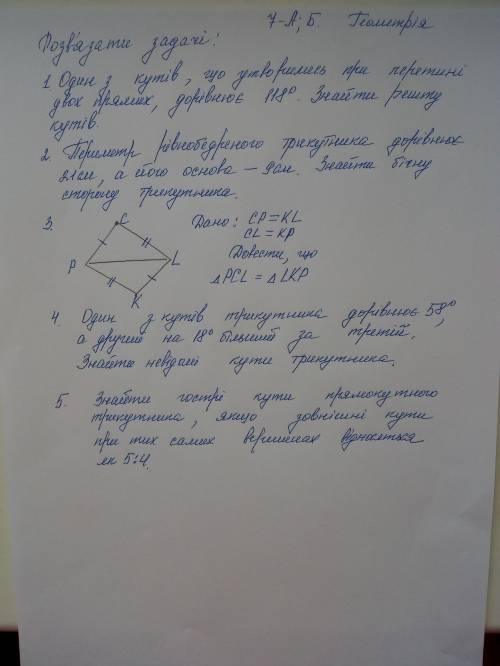 7-А; Б. Геометрія
Розв'язати задачі!
1. Один з кутів, що утворились при перетині
двох прямих, дорівнює 118°. Знайти решту
кутів.
2. Периметр рівнобедреного трикутника дорівнює
21см, а його основа – 9см. Знайти бічну
сторону трикутника.
3. C Дано: CP = KL
CL = KP
P L Довести, що
K △PCL = △LKP
4. Один з кутів трикутника дорівнює 58°,
а другий на 18° більший за третій.
Знайти невідомі кути трикутника.
5. Знайти гострі кути прямокутного
трикутника, якщо зовнішні кути
при тих самих вершинах відносяться
як 5:4.